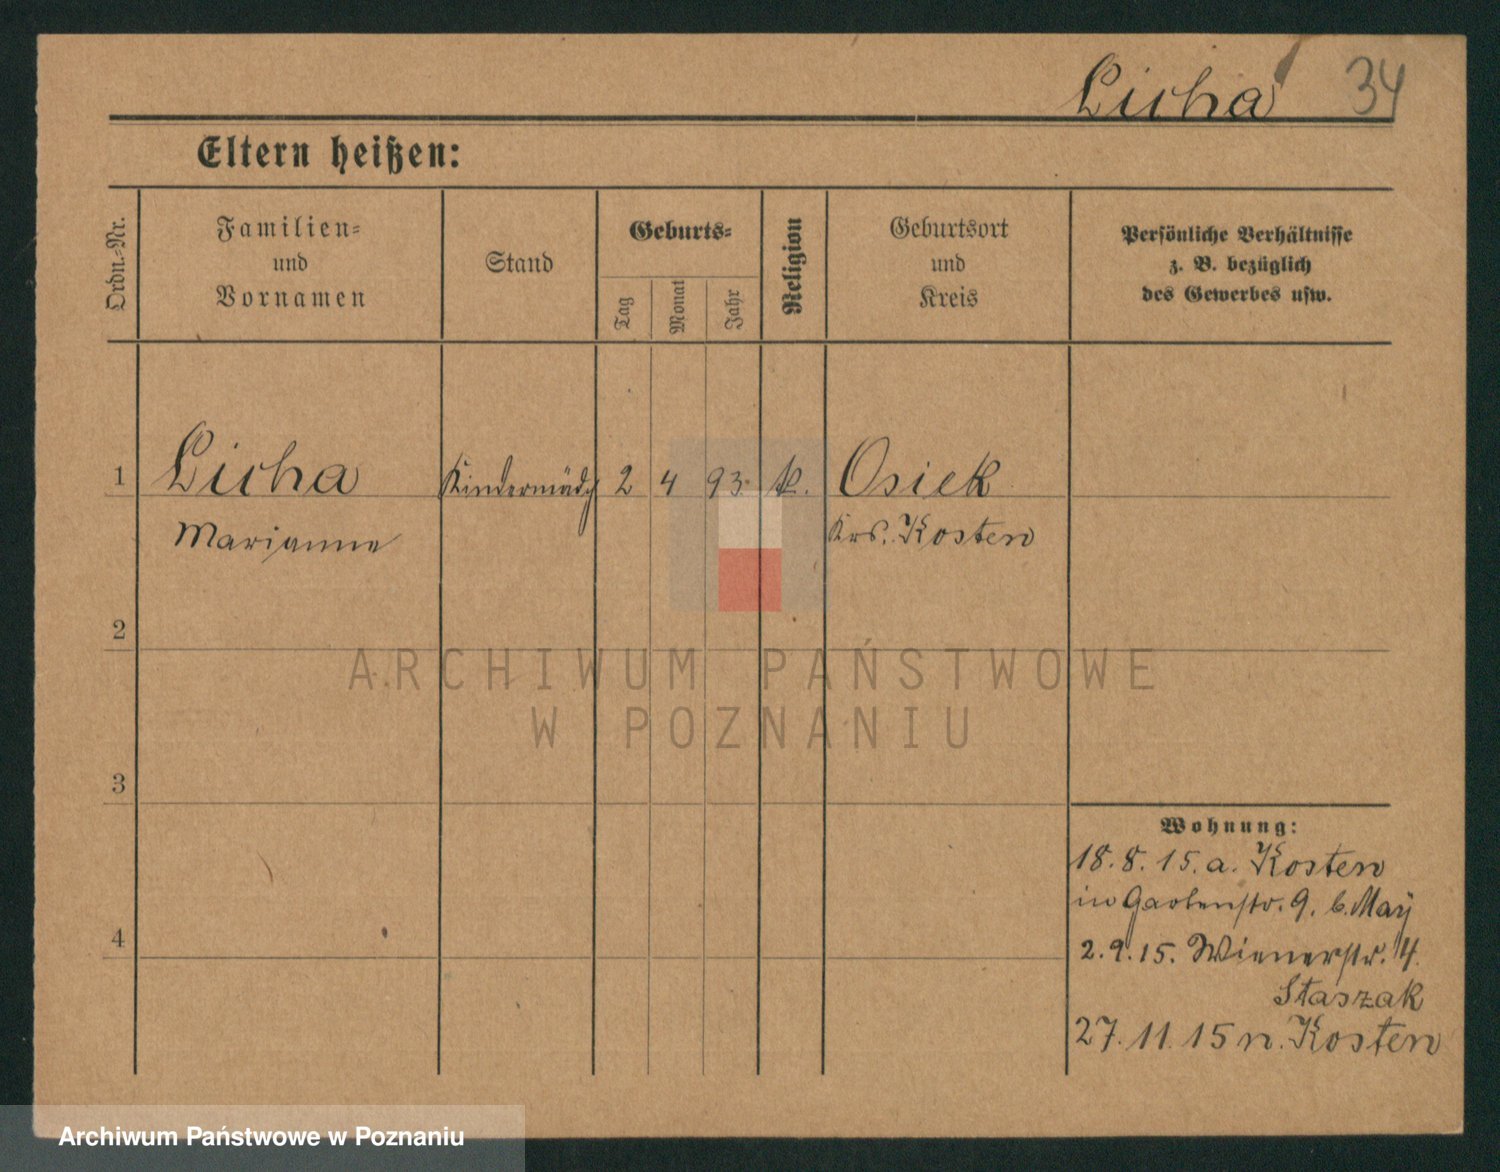 Licha 34
Eltern heißen:
Ordn.-Nr.
Familien-
und
Vornamen
Stand
Geburts-
Tag
Monat
Jahr
Religion
Geburtsort
und
Kreis
Persönliche Verhältnisse
z. B. bezüglich
des Gewerbes usw.
1 Licha Kindermädch 2 4 93. k. Osiek
Marianne Krs. Kosten
2
ARCHIWUM PAŃSTWOWE
W POZNANIU
3
Wohnung:
18.8.15. a. Kosten
in Gartenstr. 9. b. May
4
2.9.15. Wienerstr. 4.
Staszak
27.11.15 n. Kosten
Archiwum Państwowe w Poznaniu